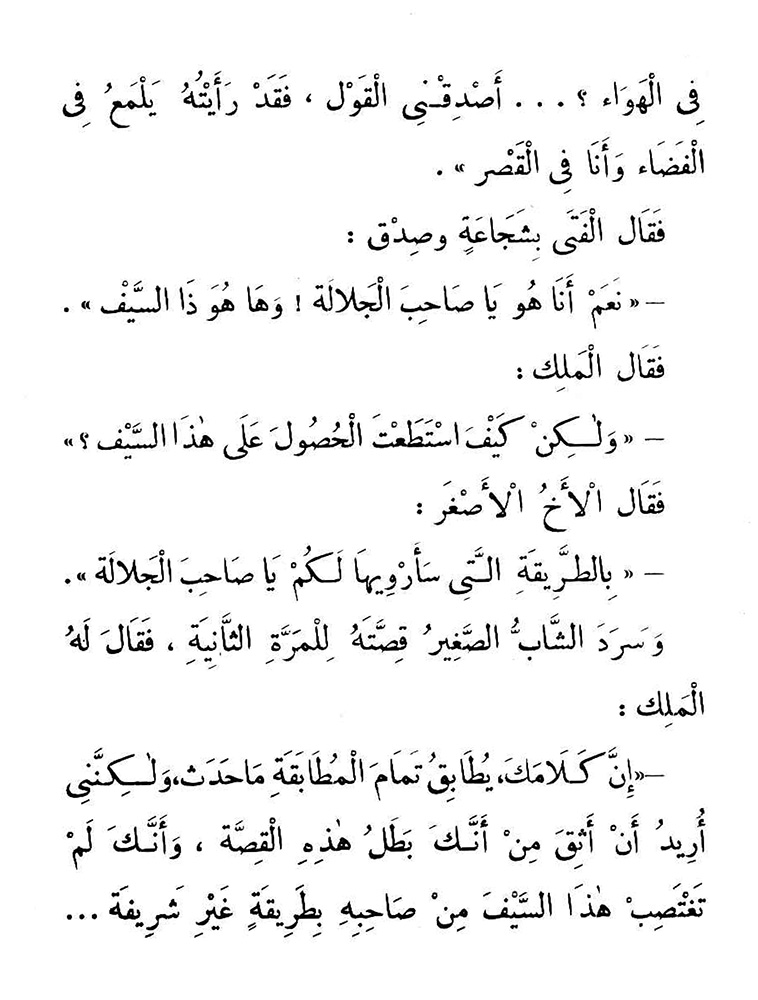 فِى الْهَوَاء ؟ ... أَصْدِقْنِى الْقَوْل ، فَقَدْ رَأَيْتُهُ يَلْمَعُ فِى
الْفَضَاء وَأَنَا فِى الْقَصْر » .
فَقَال الْفَتَى بِشَجَاعَةٍ وصِدْق :
— « نَعَمْ أَنَا هُو يَا صَاحِبَ الْجَلالَة ! وَهَا هُوَ ذَا السَّيْف » .
فَقَال الْمَلِك :
— « وَلٰكِنْ كَيْفَ اسْتَطَعْتَ الْحُصُولَ عَلَى هٰذَا السَّيْف ؟ »
فَقَال الْأَخُ الْأَصْغَر :
— « بِالطَّرِيقَةِ الَّتِى سَأَرْوِيهَا لَكُمْ يَا صَاحِبَ الْجَلالَة » .
وَسَرَدَ الشَّابُّ الصَّغِيرُ قِصَّتَهُ لِلْمَرَّةِ الثَّانِيَةِ ، فَقَالَ لَهُ
الْمَلِك :
— « إِنَّ كَلَامَكَ، يُطَابِقُ تَمَامَ الْمُطَابَقَةِ مَا حَدَث، وَلٰكِنَّنِى
أُرِيدُ أَنْ أَثِقَ مِنْ أَنَّكَ بَطَلُ هٰذِهِ الْقِصَّة ، وَأَنَّكَ لَمْ
تَغْتَصِبْ هٰذَا السَّيْفَ مِنْ صَاحِبِهِ بِطَرِيقَةٍ غَيْرِ شَرِيفَة ...